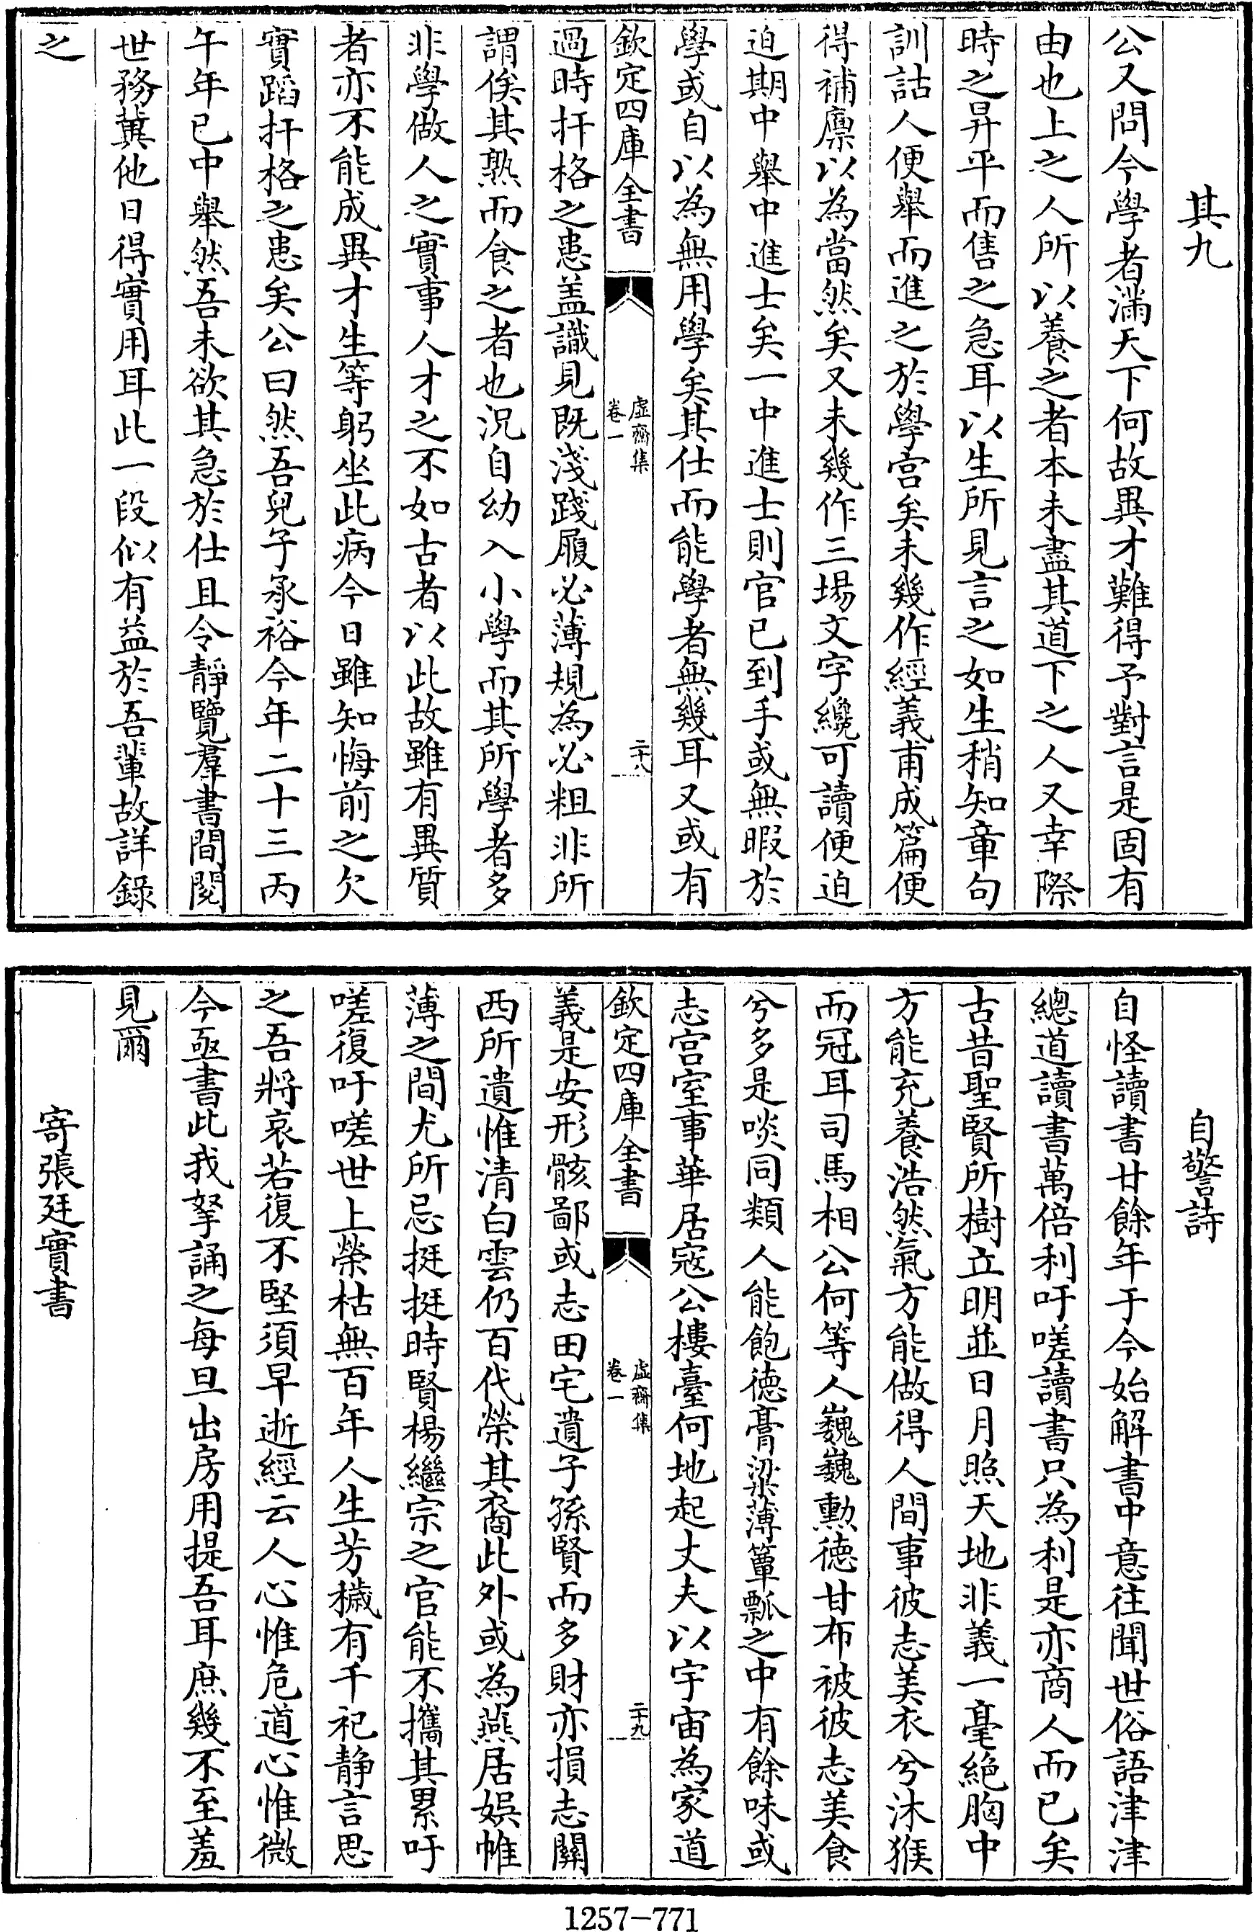 其九
公又問今學者滿天下何故異才難得予對言是固有
由也上之人所以養之者本未盡其道下之人又幸際
時之昇平而售之急耳以生所見言之如生稍知章句
訓詁人便舉而進之於學宮矣未幾作經義甫成篇便
得補廪以為當然矣又未幾作三塲文字纔可讀便迫
迫期中舉中進士矣一中進士則官已到手或無暇於
學或自以為無用學矣其仕而能學者無幾耳又或有
欽定四庫全書
虛齋集
卷一
二十八
過時扞格之患盖識見既淺踐履必薄規為必粗非所
謂俟其熟而食之者也況自幼入小學而其所學者多
非學做人之實事人才之不如古者以此故雖有異質
者亦不能成異才生等躬坐此病今日雖知悔前之欠
實蹈扞格之患矣公曰然吾兒子承裕今年二十三丙
午年已中舉然吾未欲其急於仕且令靜覽羣書間閱
世務冀他日得實用耳此一段似有益於吾輩故詳錄
之
自警詩
自怪讀書廿餘年于今始解書中意往聞世俗語津津
總道讀書萬倍利吁嗟讀書只為利是亦商人而已矣
古昔聖賢所樹立明並日月照天地非義一毫絕胸中
方能充養浩然氣方能做得人間事彼志美衣兮沐猴
而冠耳司馬相公何等人巍巍勲德甘布被彼志美食
兮多是啖同類人能飽德膏粱薄簞瓢之中有餘味或
志宫室事華居寇公樓臺何地起丈夫以宇宙為家道
欽定四庫全書
虛齋集
卷一
二十九
義是安形骸鄙或志田宅遺子孫賢而多財亦損志關
西所遺惟清白雲仍百代榮其裔此外或為燕居娯帷
薄之間尤所忌挺挺時賢楊繼宗之官能不攜其累吁
嗟復吁嗟世上榮枯無百年人生芳穢有千祀静言思
之吾將哀若復不堅須早逝經云人心惟危道心惟微
今亟書此我孥誦之每旦出房用提吾耳庶幾不至羞
見爾
寄張廷實書
1257-771